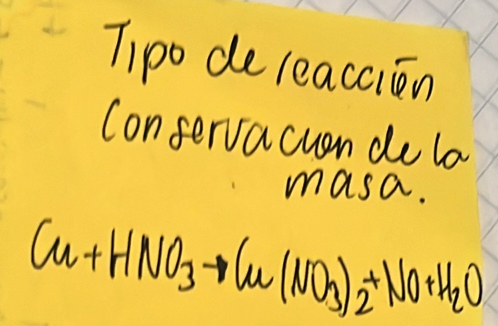 Tipo de reacción
Conservacion de la
masa.
Cu + HNO₃ → Cu(NO₃)₂ + NO + H₂O